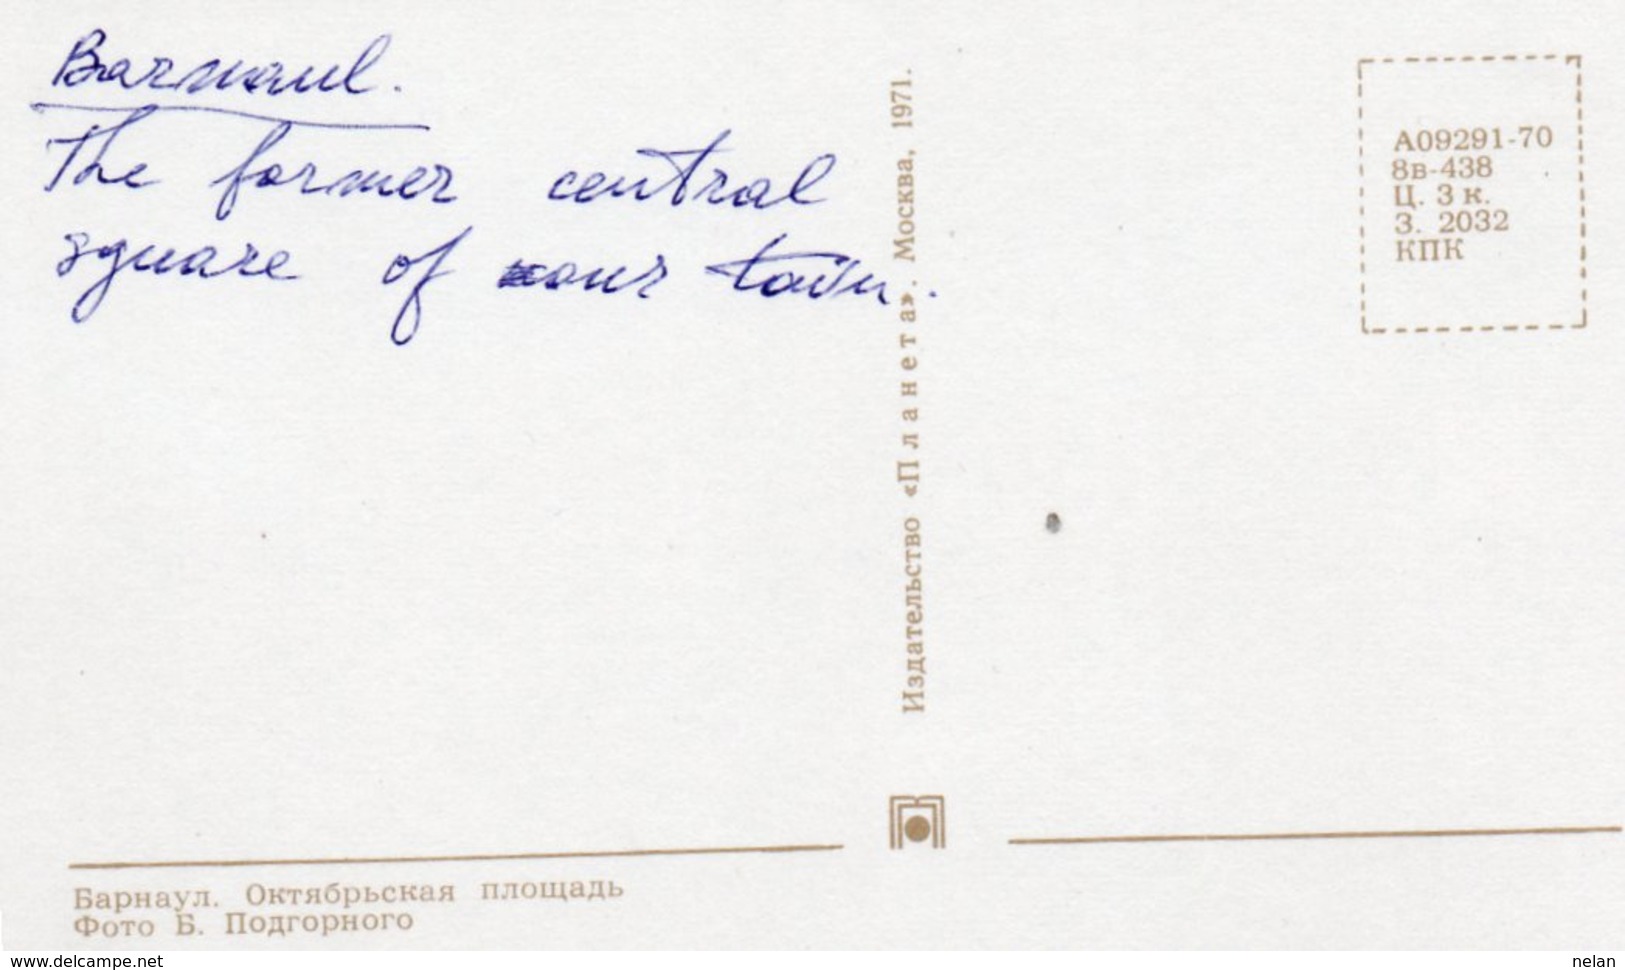 Barnaul.
The former central
square of our town.
Издательство «Планета». Москва, 1971.
А09291-70
8в-438
Ц. 3 к.
З. 2032
КПК
Барнаул. Октябрьская площадь
Фото Б. Подгорного
www.delcampe.net
nelan